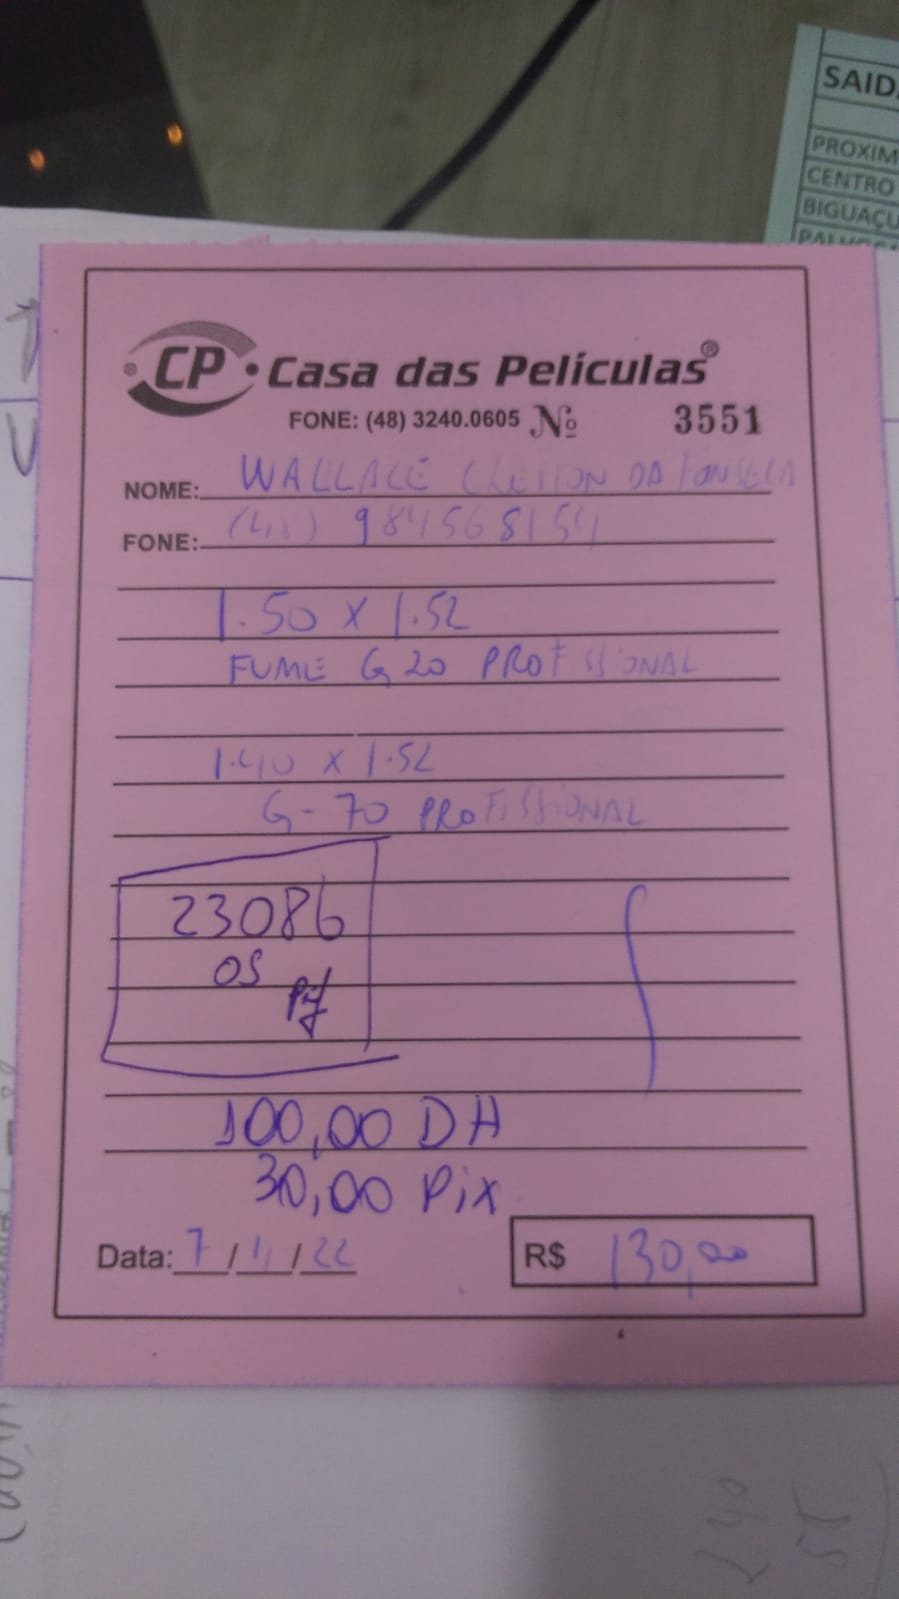 SAID
PROXIM
CENTRO
BIGUAÇU
CP Casa das Películas®
FONE: (48) 3240.0605 Nº 3551
NOME: WALLACE CLEITON DA FONSECA
FONE: (48) 984568154
1.50 x 1.52
FUME G20 PROFISSIONAL
1.40 x 1.52
G-70 PROFISSIONAL
23086
OS
100,00 DH
30,00 Pix
Data: 7/1/22 R$ 130,00